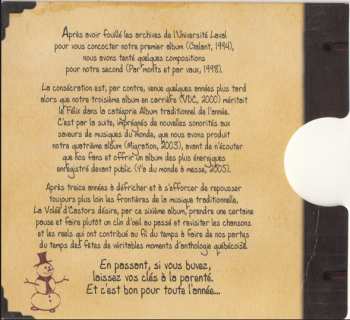 Après avoir fouillé les archives de l'Université Laval
pour vous concocter notre premier album (Galant, 1994),
nous avons tenté quelques compositions
pour notre second (Par monts et par vaux, 1998).
La consécration est, par contre, venue quelques années plus tard
alors que notre troisième album en carrière (VDC, 2000) méritait
le Félix dans la catégorie Album traditionnel de l'année.
C'est par la suite, imprégnés de nouvelles sonorités aux
saveurs de musiques du monde, que nous avons produit
notre quatrième album (Migration, 2003), avant de n'écouter
que nos fans et offrir un album des plus énergiques
enregistré devant public (Y'a du monde à messe, 2005).
Après treize années à défricher et à s'efforcer de repousser
toujours plus loin les frontières de la musique traditionnelle,
La Volée d'Castors désire, par ce sixième album, prendre une certaine
pause et faire plutôt un clin d'oeil au passé et revisiter les chansons
et les reels qui ont contribué au fil du temps à faire de nos partys
du temps des fêtes de véritables moments d'anthologie québécoise.
En passant, si vous buvez,
laissez vos clés à la parenté.
Et c'est bon pour toute l'année...